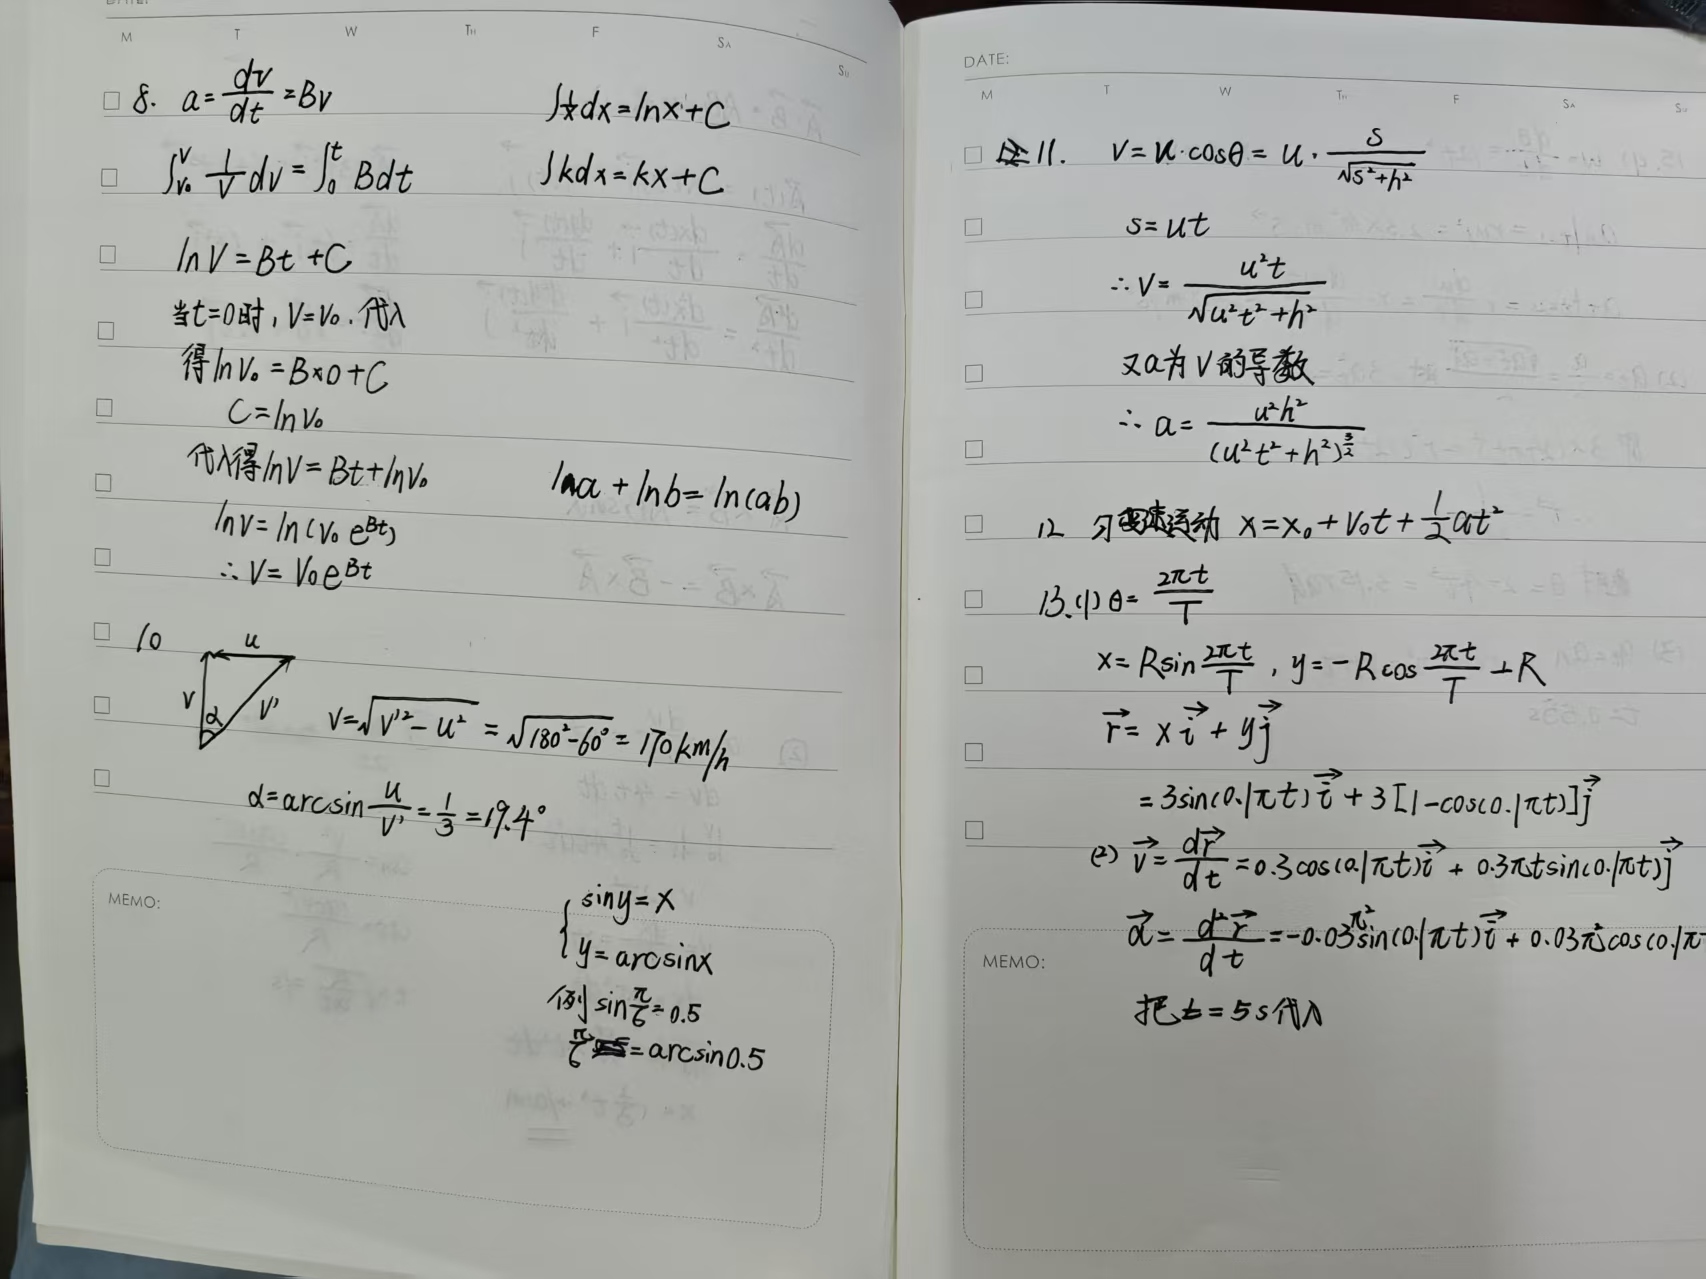 M T W TH F SA SU
8. a=dv/dt=Bv
∫1/x dx=lnx+C
∫_{v₀}^{v} 1/v dv=∫_0^t Bdt
∫kdx=kx+C
lnV=Bt+C
当t=0时,V=V₀.代入
得lnV₀=B×0+C
C=lnV₀
代入得lnV=Bt+lnV₀
lna+lnb=ln(ab)
lnv=ln(V₀e^{Bt})
∴V=V₀e^{Bt}
10
u
V α V'
V=√(V'²-u²)=√(180²-60²)=170km/h
α=arcsin u/V'=1/3=19.4°
MEMO:
{siny=x
y=arcsinx
例sin π/6=0.5
π/6=arcsin0.5
DATE:
M T W TH F SA SU
11. V=u·cosθ=u·s/√(s²+h²)
s=ut
∴V=u²t/√(u²t²+h²)
又a为V的导数
∴a=u²h²/(u²t²+h²)^{3/2}
12 匀变速运动 x=x₀+V₀t+1/2at²
13.(1)θ=2πt/T
x=Rsin 2πt/T,y=-Rcos 2πt/T+R
r⃗=xi⃗+yj⃗
=3sin(0.1πt)i⃗+3[1-cos(0.1πt)]j⃗
(2) v⃗=dr⃗/dt=0.3cos(0.1πt)i⃗+0.3πtsin(0.1πt)j⃗
a⃗=d²r⃗/dt=-0.03π²sin(0.1πt)i⃗+0.03π²cos(0.1π
MEMO:
把t=5s代入